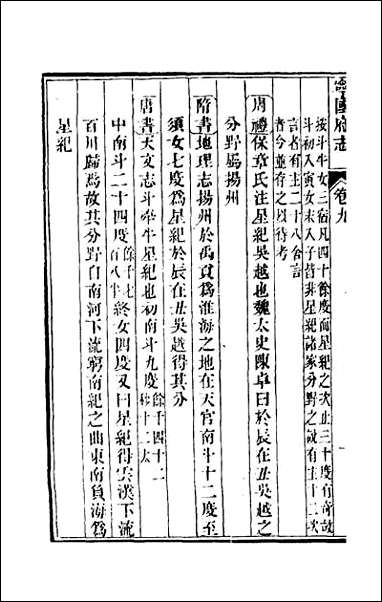 寧國府志　卷九
按斗牛女三宿凡四十餘度而星紀之次止三十度有奇故
斗初入寅女末入子皆非星紀諸家分野之說有主十二次
言者有主二十八舍言
者今並存之以待考
周禮保章氏注星紀吳越也魏太史陳卓曰於辰在丑吳越之
分野屬揚州
隋書地理志揚州於禹貢為淮海之地在天官南斗十二度至
須女七度爲星紀於辰在丑吳越得其分
唐書天文志斗牽牛星紀也初南斗九度餘千四十二秒十二太
中南斗二十四度終女四度又曰星紀得雲漢下流
百川歸焉故其分野自南河下流窮南紀之曲東南負海爲
星紀